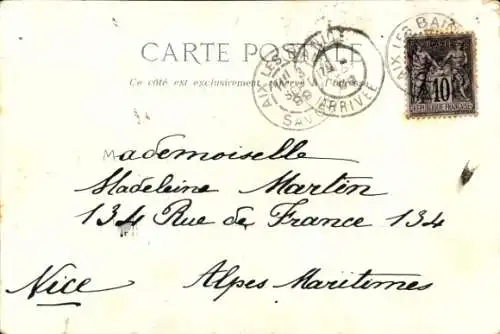 CARTE POSTALE
Ce côté est exclusivement réservé à l'adresse
AIX-LES-BAINS
SAVOIE
ARRIVÉE
AIX-LES-BAINS
10
REPUBLIQUE FRANCAISE
Mademoiselle
Madeleine Martin
134 Rue de France 134
Nice Alpes Maritimes